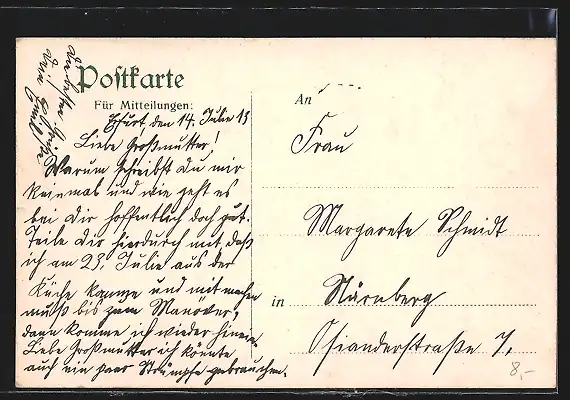 Postkarte
Für Mitteilungen:
Erfurt, den 14. Julie 13
Liebe Großmutter!
Warum schreibst Du mir
keinmal und wie geht es
bei Dir hoffentlich doch gut.
Teile Dir hierdurch mit daß
ich am 23. Julie aus der
Küche komme und mit machen
muß bis zum Manöver,
dann komme ich wieder hinein.
Liebe Großmutter ich könnte
auch ein paar Strümpfe gebrauchen.
An
Frau
Margarete Schmidt
in Nürnberg
Osianderstraße 7,
8,-